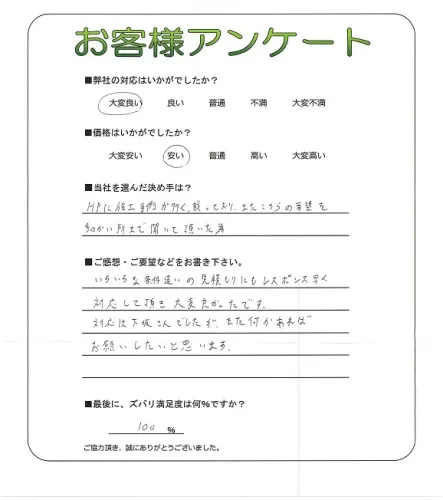 お客様アンケート
■弊社の対応はいかがでしたか？
大変良い 良い 普通 不満 大変不満
■価格はいかがでしたか？
大変安い 安い 普通 高い 大変高い
■当社を選んだ決め手は？
HPに施工事例が多く、載っており、またこちらの希望を
細かい所まで聞いて頂いた為
■ご感想・ご要望などをお書き下さい。
いろいろな条件違いの見積もりにもレスポンス早く
対応して頂き大変良かったです。
対応は下坂さんでしたが、また何かあれば
お願いしたいと思います。
■最後に、ズバリ満足度は何％ですか？
100 %
ご協力頂き、誠にありがとうございました。